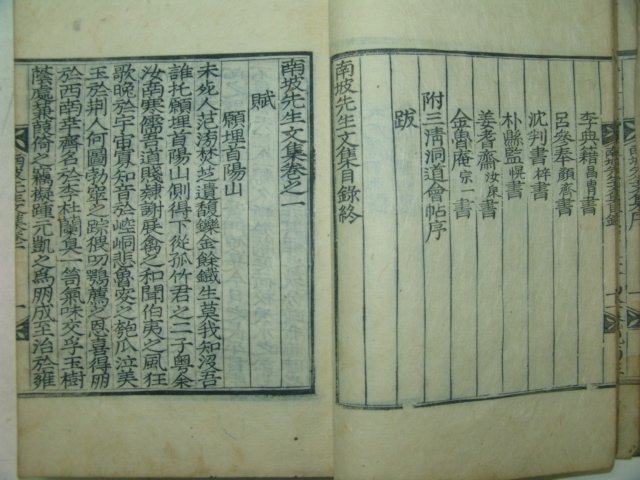 李典籍昌冑書
呂參奉顔齋書
沈判書梓書
朴縣監愰書
姜耆齋汝㦿書
金魯庵宗一書
附三淸洞道會帖序
跋
南坡先生文集目錄終
南坡先生文集卷之一
賦
願埋首陽山
未死人范滂焚芝遺馥鑠金餘鐵生莫我知沒吾
誰托願埋首陽山側得下從孤竹君之二子粤余
汝南寒儒吾道賤隸謝展禽之和聞伯夷之風狂
歌晚於宇宙實知音於崆峒悲魯安之匏瓜泣美
玉於荆人何圖勃窣之踪猥叨鶚薦之恩喜得朋
於西南幸齊名於李杜蘭臭一筒氣味交孚玉樹
蔭處蒹葭倚之竊擬踵元凱之爲朋成至治於雍